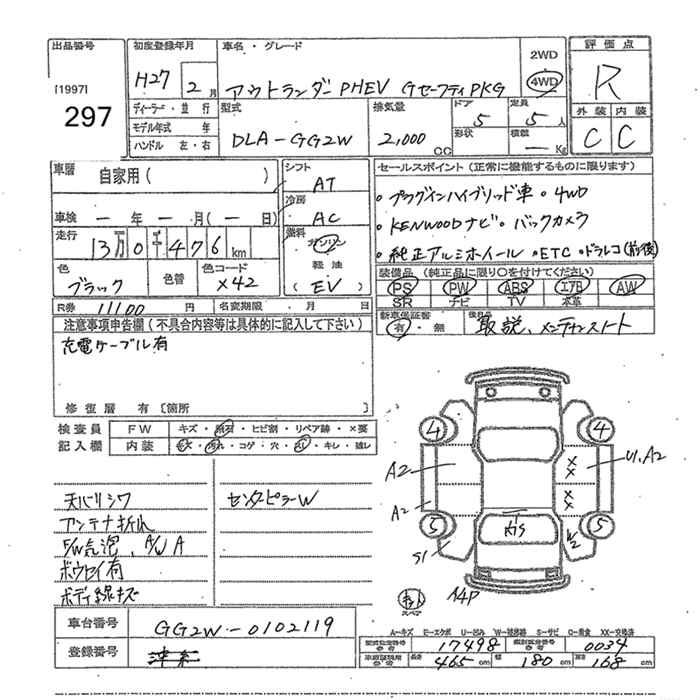 出品番号
[1997]
297
初度登録年月
H27 2月
車名・グレード
アウトランダーPHEV GセーフティPKG
2WD
4WD
評価点
R
外装 内装
C C
ディーラー・並行
モデル年式 年
ハンドル 左・右
型式
DLA-GG2W
排気量
2,000 CC
ドア 5
形状
定員 5人
積載 ― Kg
車暦 自家用( )
車検 ―年―月(―日)
走行
13万0千476km
色
ブラック
色替
色コード
X42
R券 11100 円
名変期限 月 日
シフト
AT
冷房
AC
燃料
ガソリン
軽油
(EV)
セールスポイント(正常に機能するものに限ります)
・プラグインハイブリッド車・4WD
・KENWOODナビ・バックカメラ
・純正アルミホイール・ETC・ドラレコ(前後)
装備品(純正品に限り○を付けてください)
PS PW ABS エアB AW
SR ナビ TV 本革
新車保証書
有・無
後日品
取説、メンテナンスノート
注意事項申告欄(不具合内容等は具体的に記入して下さい)
充電ケーブル有
修復暦 有〔箇所
検査員
記入欄
FW キズ・飛石・ヒビ割・リペア跡・×要
内装 キズ・汚れ・コゲ・穴・スレ・キレ・破レ
天バリシワ
アンテナ折れ
F/W気泡、A/W A
ボウセイ有
ボディ線キズ
センタピラーW
4 4
A2 U1, A2
A2 XX
XX
5 5
S1 W2
A4P
スペア
車台番号 GG2W-0102119
登録番号
A-キズ E-エクボ U-凹み W-補修跡 S-サビ C-腐食 XX-交換済
型式指定番号 17498 類別区分番号 0034
長さ 465cm 幅 180cm 高さ 168cm